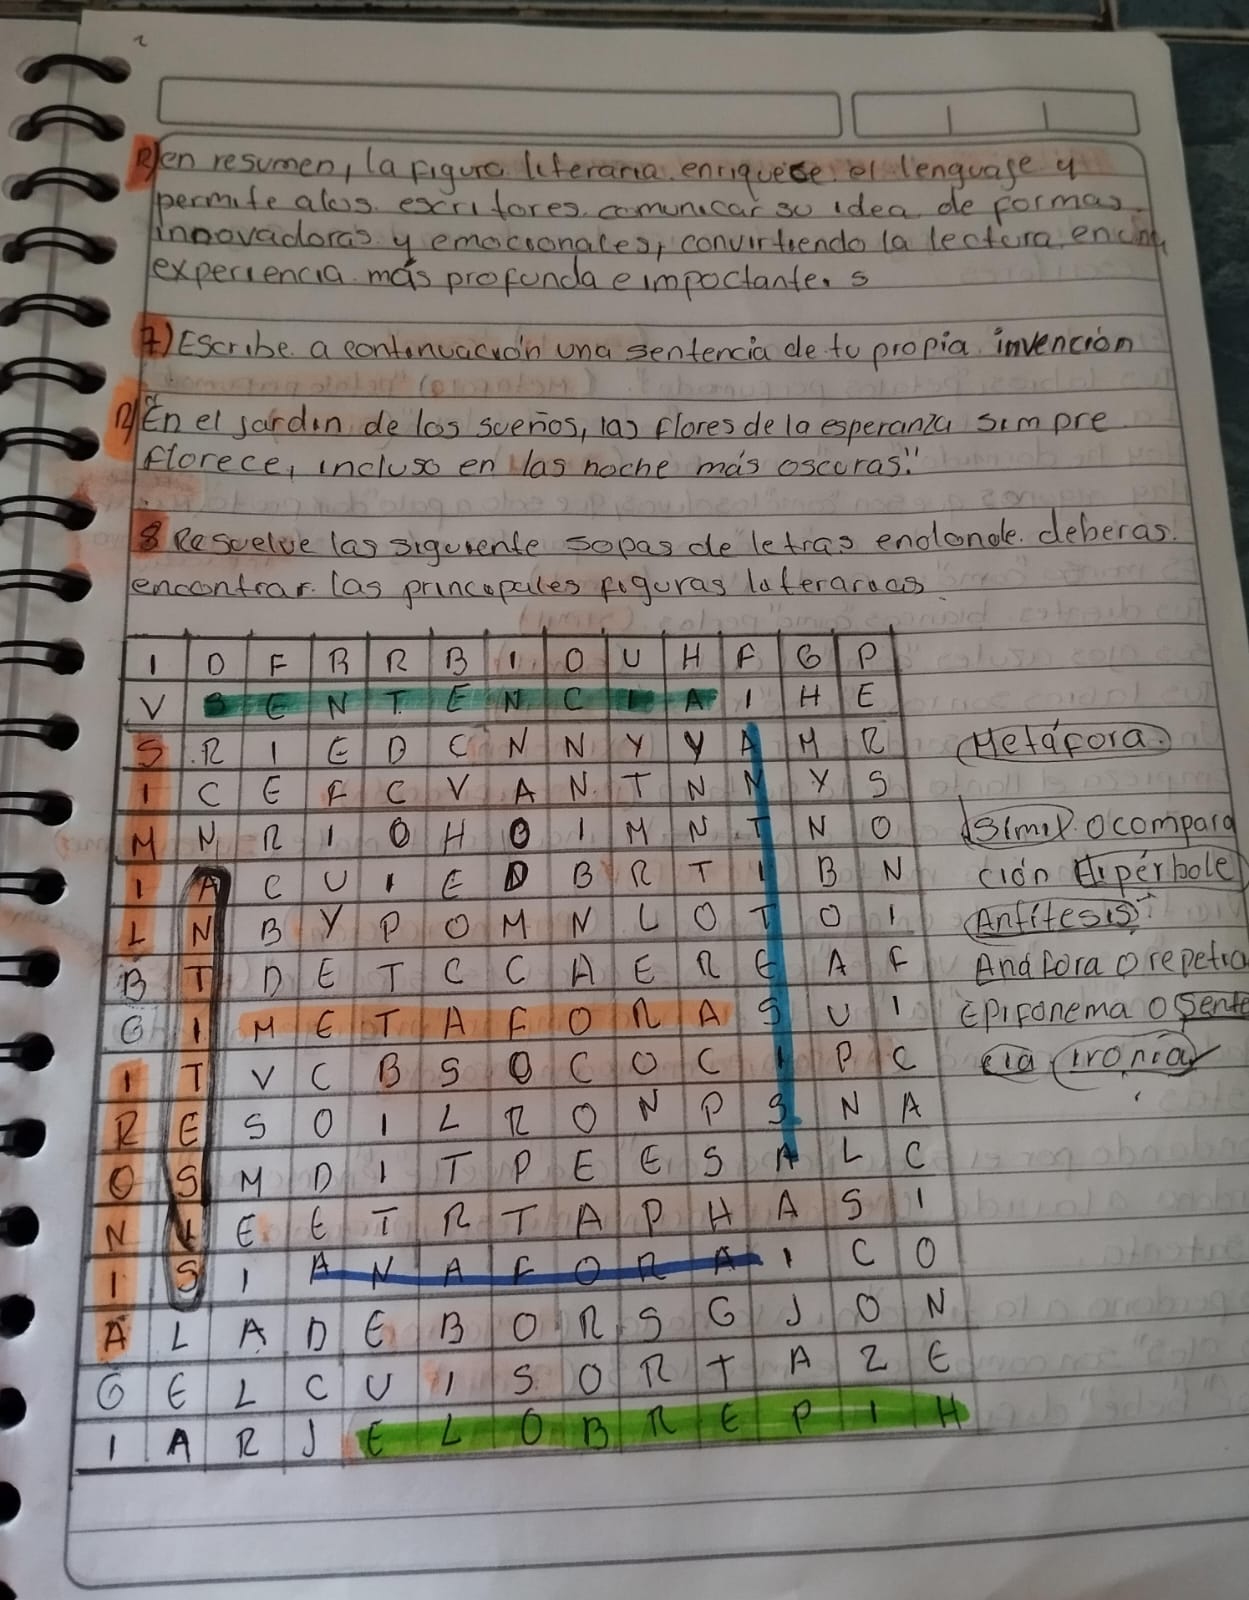 R) en resumen, la figura literaria enriquece el lenguaje y
permite alos escritores comunicar su idea de formas
innovadoras y emocionales, convirtiendo la lectura en una
experiencia más profunda e impoctante. s
7) Escribe a continuación una sentencia de tu propia invención
R/ "En el jardin de los sueños, las flores de la esperanza simpre
florece, incluso en las noche más oscuras."
8 Resuelve las siguiente sopas de letras endonde deberas
encontrar las principales figuras literarias
I D F R R B I O U H F G P
V S E N T E N C I A I H E
S R I E D C N N Y Y A M R
I C E F C V A N T N N Y S
M N R I O H O I M N T N O
I A C U I E D B R T I B N
L N B Y P O M N L O T O I
B T D E T C C A E R E A F
G I M E T A F O R A S U I
I T V C B S O C O C I P C
R E S O I L R O N P S N A
O S M D I T P E E S A L C
N I E E T R T A P H A S I
I S I A N A F O R A I C O
A L A D E B O R S G J O N
G E L C U I S O R T A Z E
I A R J E L O B R E P I H
Metáfora
Simil o compara
ción Hipérbole
Antítesis
Anáfora o repetic
Epifonema o Sente
cia ironía